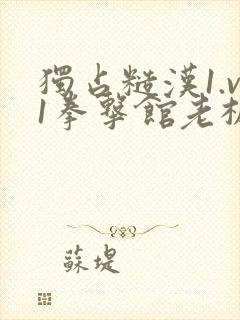 獨占糙漢1.v
1拳擊館老板
蘇堤